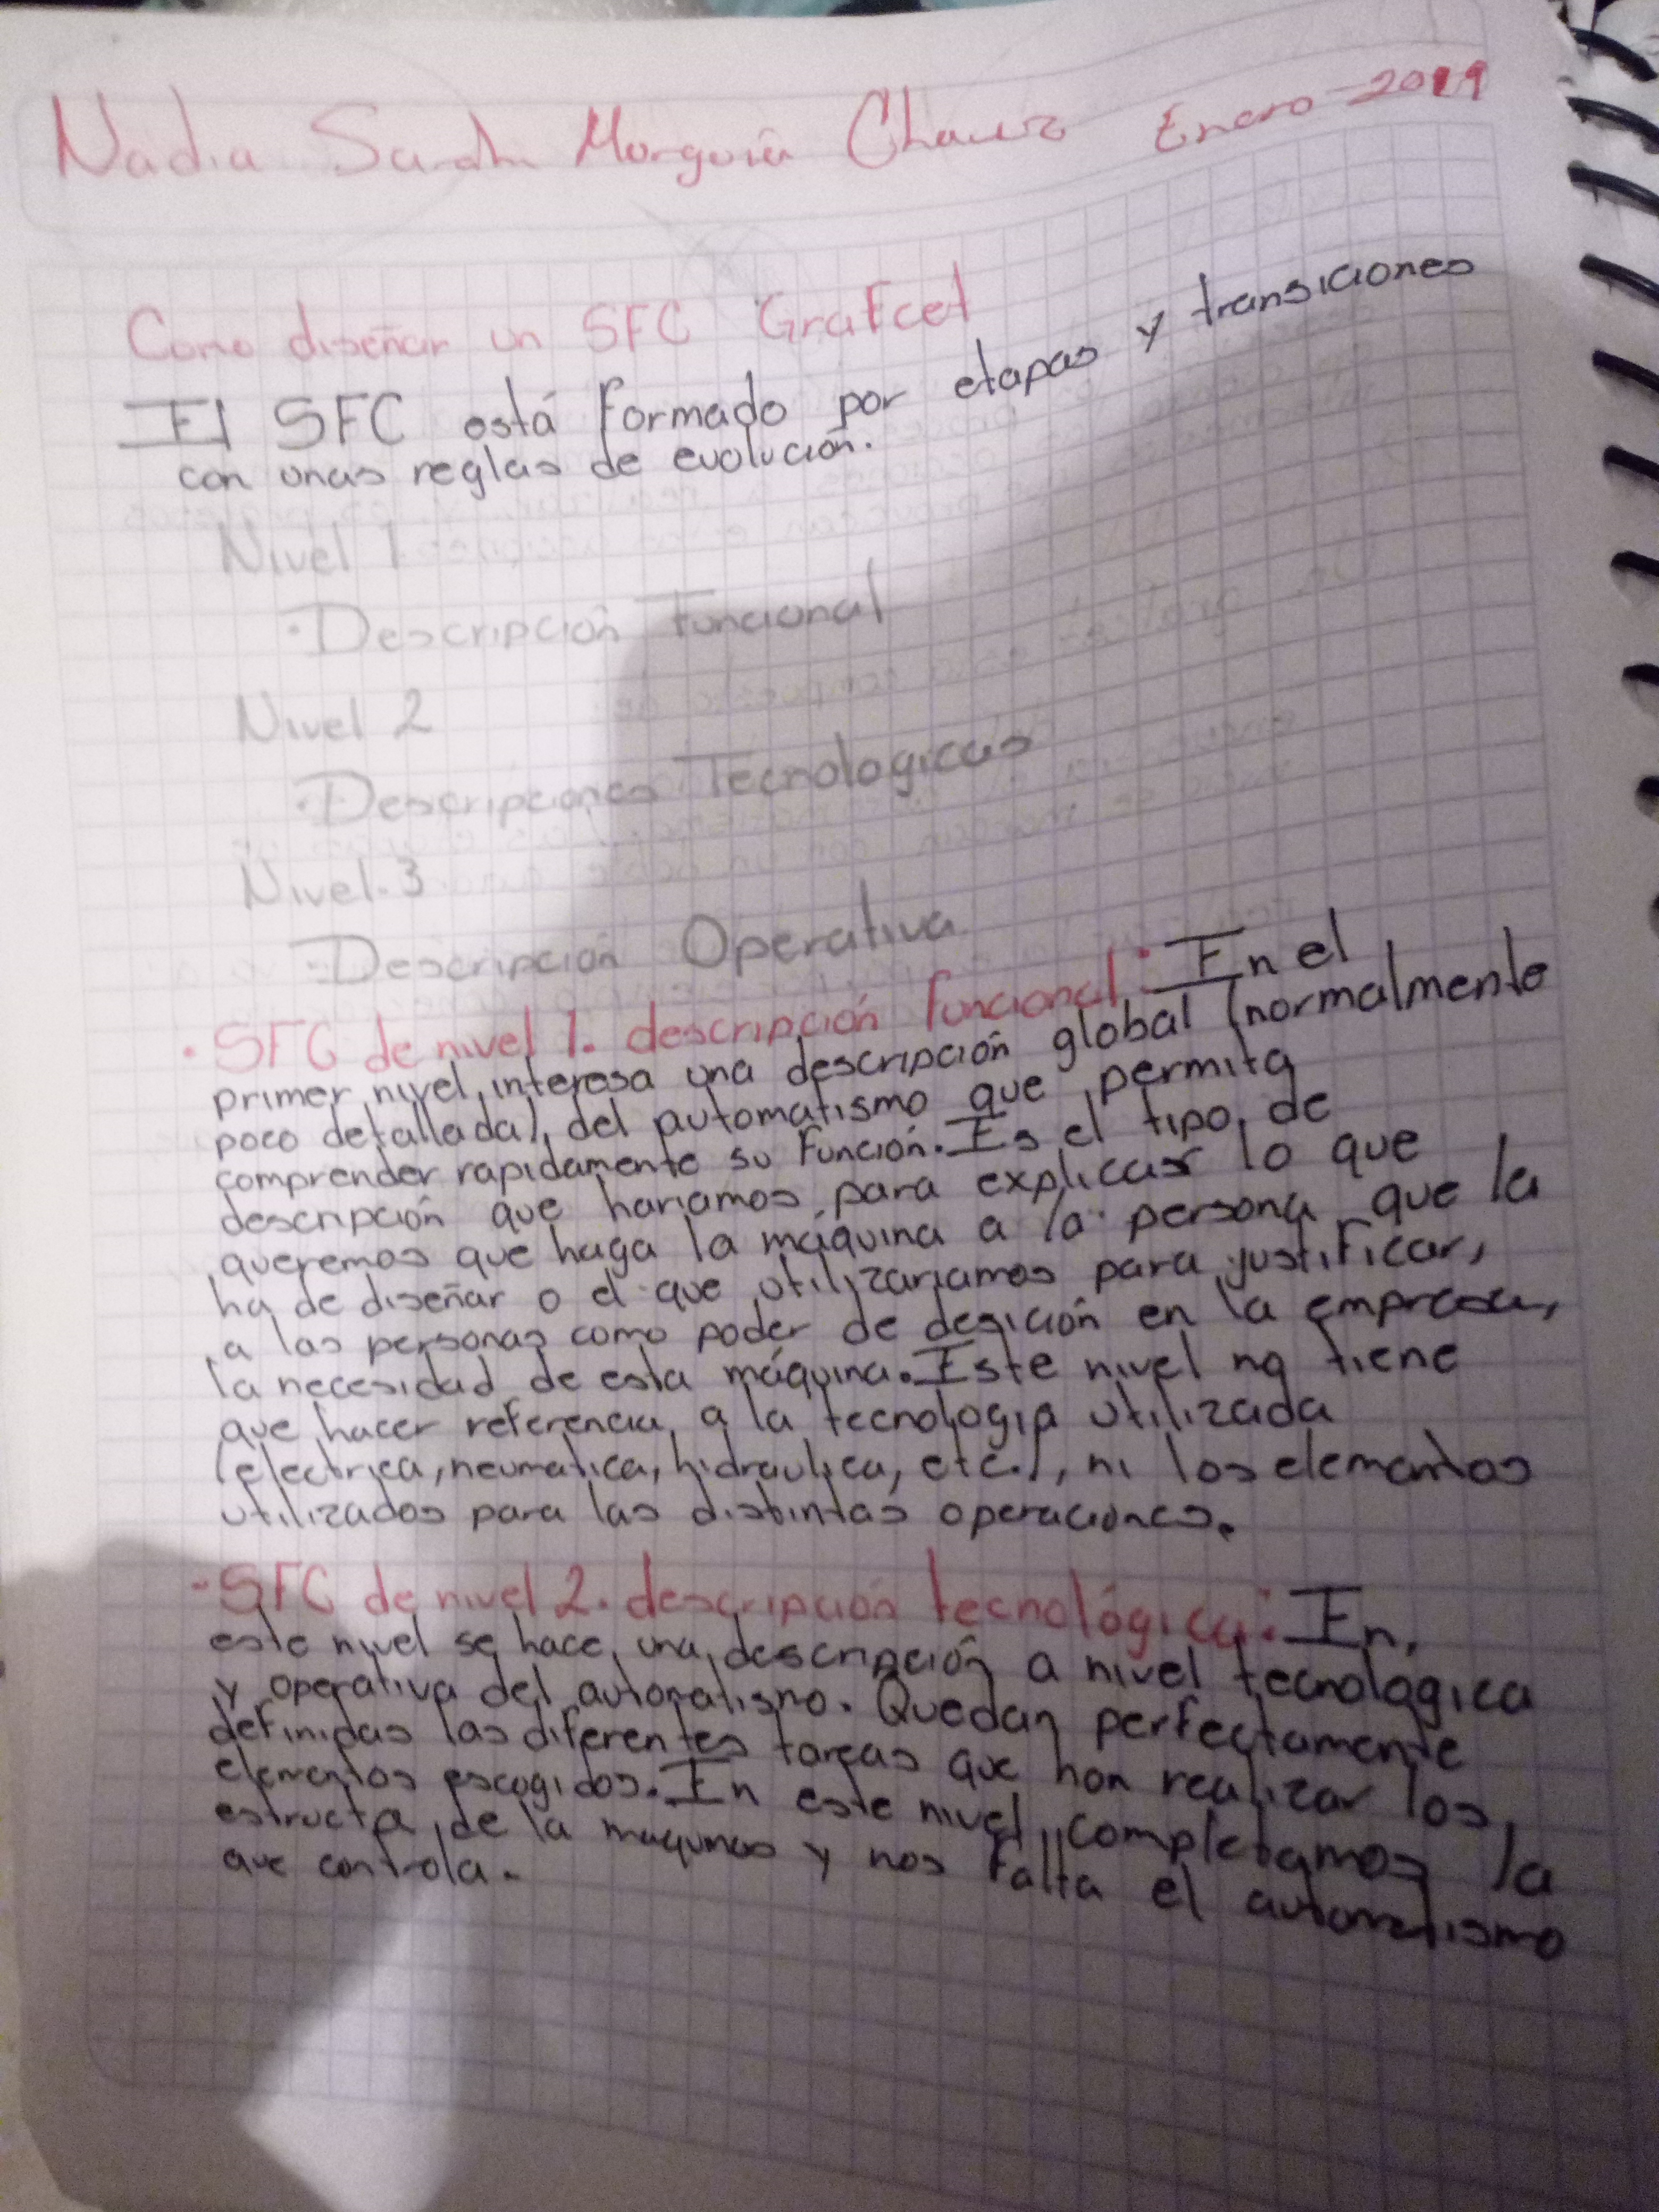 Nadia Sarah Munguia Chavez Enero-2019
Como diseñar un SFC Grafcet
El SFC está formado por etapas y transiciones
con unas reglas de evolución.
Nivel 1
·Descripción Funcional
Nivel 2
·Descripciones Tecnologicas
Nivel.3
-Descripción Operativa
·SFC de nivel 1. descripción funcional: En el
primer nivel, interesa una descripción global (normalmente
poco detallada), del automatismo que permita
comprender rapidamente su Función. Es el tipo, de
descripción que hariamos para explicar lo que
queremos que haga la máquina a la persona que la
ha de diseñar o el que utilizariamos para justificar,
a las personas como poder de desición en la empresa,
la necesidad de esta máquina. Este nivel no tiene
que hacer referencia a la tecnologia utilizada
(electrica, neumatica, hidraulica, etc.), ni los elementos
utilizados para las distintas operaciones.
-SFC de nivel 2. descripción tecnológica: En,
este nivel se hace una descripción a nivel tecnológica
y operativa del automatismo. Quedan perfectamente
definidas las diferentes tareas que han realizar los
elementos escogidos. En este nivel completamos la
estructa de la maquinas y nos falta el automatismo
que controla.